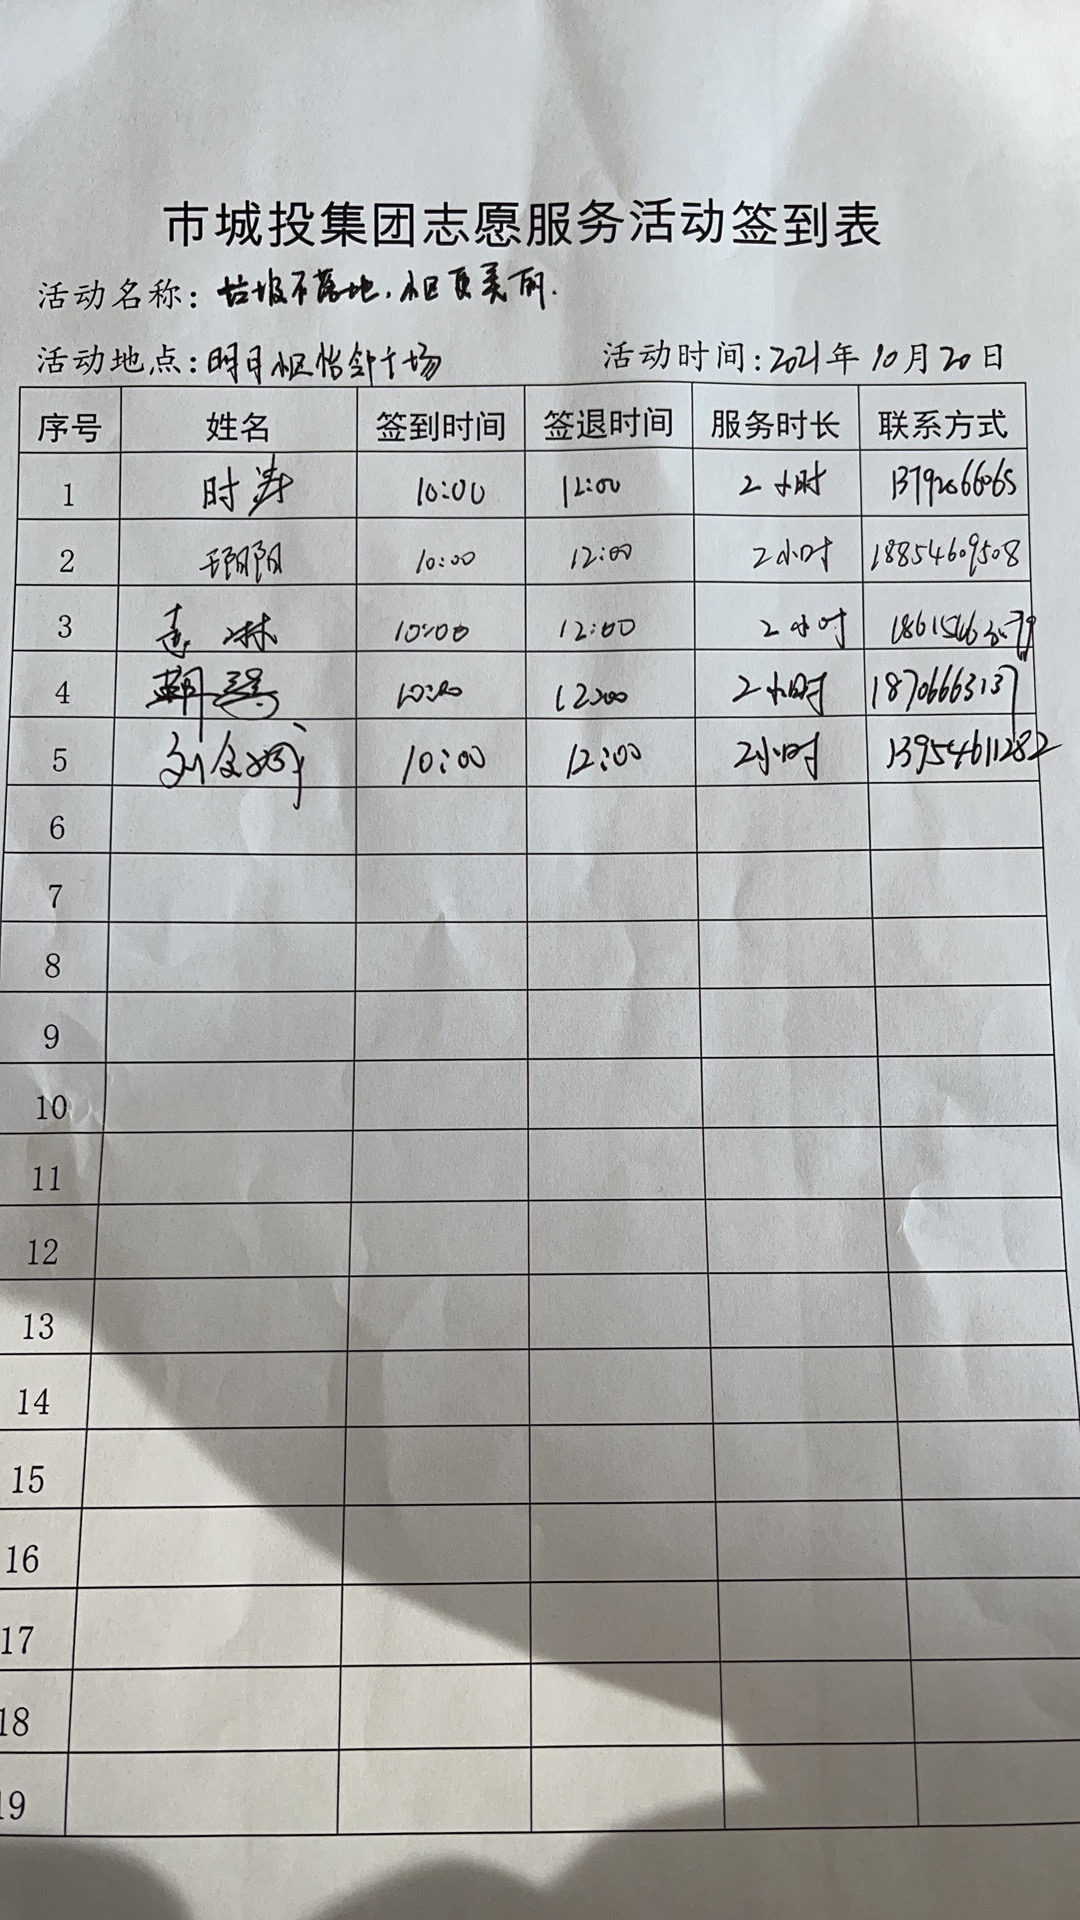 市城投集团志愿服务活动签到表
活动名称：垃圾不落地，社区更美丽.
活动地点：明月社区怡 广场 活动时间：2021年10月20日
序号 姓名 签到时间 签退时间 服务时长 联系方式
1 时涛 10:00 12:00 2小时
2 阳阳 10:00 12:00 2小时 18854609508
3 琳 10:00 12:00 2小时
4 10:00 12:00 2小时 18706663137
5 刘 10:00 12:00 2小时 13954611282
6
7
8
9
10
11
12
13
14
15
16
17
18
19